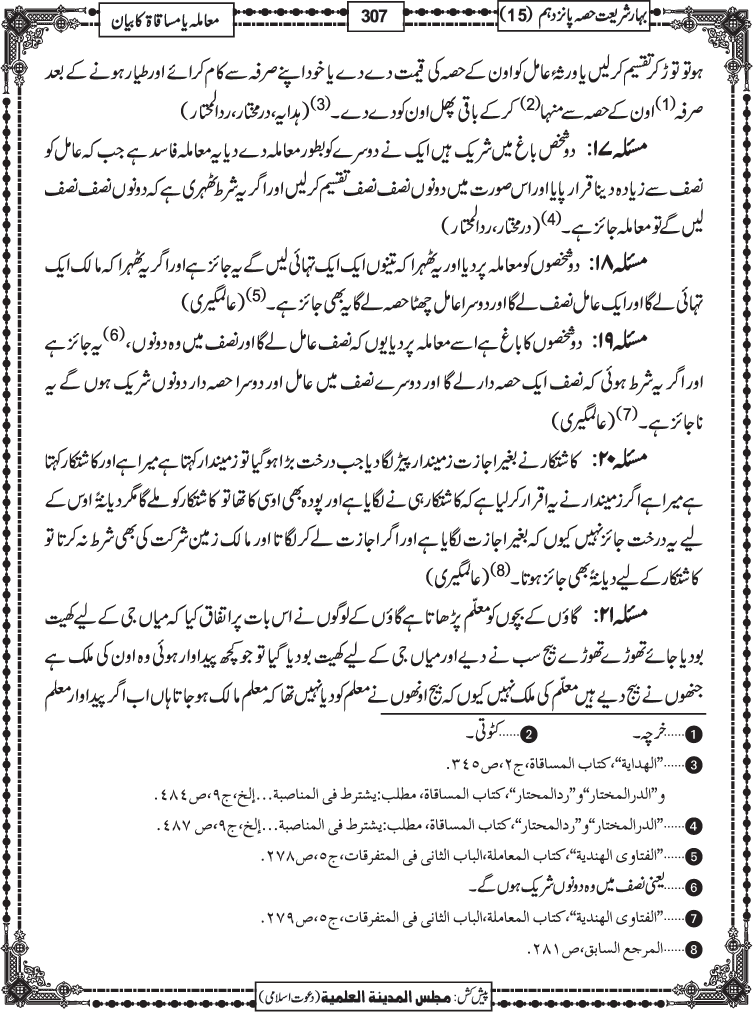 بہارِ شریعت حصہ پانزدہم (15)
307
معاملہ یا مساقاۃ کا بیان
ہو تو توڑ کر تقسیم کرلیں یا ورثۂ عامل کو اون کے حصہ کی قیمت دے دے یا خود اپنے صرفہ سے کام کرائے اور طیار ہونے کے بعد
صرفہ(1) اون کے حصہ سے منہا(2) کر کے باقی پھل اون کو دے دے۔(3) (ہدایہ، درمختار، ردالمحتار)
مسئلہ ۱۷: دو شخص باغ میں شریک ہیں ایک نے دوسرے کو بطور معاملہ دے دیا یہ معاملہ فاسد ہے جب کہ عامل کو
نصف سے زیادہ دینا قرار پایا اور اس صورت میں دونوں نصف نصف تقسیم کرلیں اور اگر یہ شرط ٹھہری ہے کہ دونوں نصف نصف
لیں گے تو معاملہ جائز ہے۔(4) (درمختار، ردالمحتار)
مسئلہ ۱۸: دو شخصوں کو معاملہ پر دیا اور یہ ٹھہرا کہ تینوں ایک ایک تہائی لیں گے یہ جائز ہے اور اگر یہ ٹھہرا کہ مالک ایک
تہائی لے گا اور ایک عامل نصف لے گا اور دوسرا عامل چھٹا حصہ لے گا یہ بھی جائز ہے۔(5) (عالمگیری)
مسئلہ ۱۹: دو شخصوں کا باغ ہے اسے معاملہ پر دیا یوں کہ نصف عامل لے گا اور نصف میں وہ دونوں،(6) یہ جائز ہے
اور اگر یہ شرط ہوئی کہ نصف ایک حصہ دار لے گا اور دوسرے نصف میں عامل اور دوسرا حصہ دار دونوں شریک ہوں گے یہ
ناجائز ہے۔(7) (عالمگیری)
مسئلہ ۲۰: کاشتکار نے بغیر اجازت زمیندار پیڑ لگا دیا جب درخت بڑا ہوگیا تو زمیندار کہتا ہے میرا ہے اور کاشتکار کہتا
ہے میرا ہے اگر زمیندار نے یہ اقرار کرلیا ہے کہ کاشتکار ہی نے لگایا ہے اور پودہ بھی اوسی کا تھا تو کاشتکار کو ملے گا مگر دیانۃً اوس کے
لیے یہ درخت جائز نہیں کیوں کہ بغیر اجازت لگایا ہے اور اگر اجازت لے کر لگاتا اور مالک زمین شرکت کی بھی شرط نہ کرتا تو
کاشتکار کے لیے دیانۃً بھی جائز ہوتا۔(8) (عالمگیری)
مسئلہ ۲۱: گاؤں کے بچوں کو معلّم پڑھاتا ہے گاؤں کے لوگوں نے اس بات پر اتفاق کیا کہ میاں جی کے لیے کھیت
بو دیا جائے تھوڑے تھوڑے بیج سب نے دیے اور میاں جی کے لیے کھیت بو دیا گیا تو جو کچھ پیداوار ہوئی وہ اون کی ملک ہے
جنھوں نے بیج دیے ہیں معلّم کی ملک نہیں کیوں کہ بیج اونھوں نے معلم کو دیا نہیں تھا کہ معلم مالک ہوجاتا ہاں اب اگر پیداوار معلم
1 ......خرچہ۔ 2 ......کٹوتی۔
3 ......”الهداية“، كتاب المساقاة، ج٢، ص٣٤٥.
و”الدرالمختار“و”ردالمحتار“، كتاب المساقاة، مطلب: يشترط في المناصبة...إلخ، ج٩، ص٤٨٤.
4 ......”الدرالمختار“و”ردالمحتار“، كتاب المساقاة، مطلب: يشترط في المناصبة...إلخ، ج٩، ص ٤٨٧.
5 ......”الفتاوى الهندية“، كتاب المعاملة، الباب الثاني في المتفرقات، ج٥، ص٢٧٨.
6 ......یعنی نصف میں وہ دونوں شریک ہوں گے۔
7 ......”الفتاوى الهندية“، كتاب المعاملة، الباب الثاني في المتفرقات، ج٥، ص٢٧٩.
8 ......المرجع السابق، ص٢٨١.
پیش کش: مجلس المدينة العلمية (دعوت اسلامی)